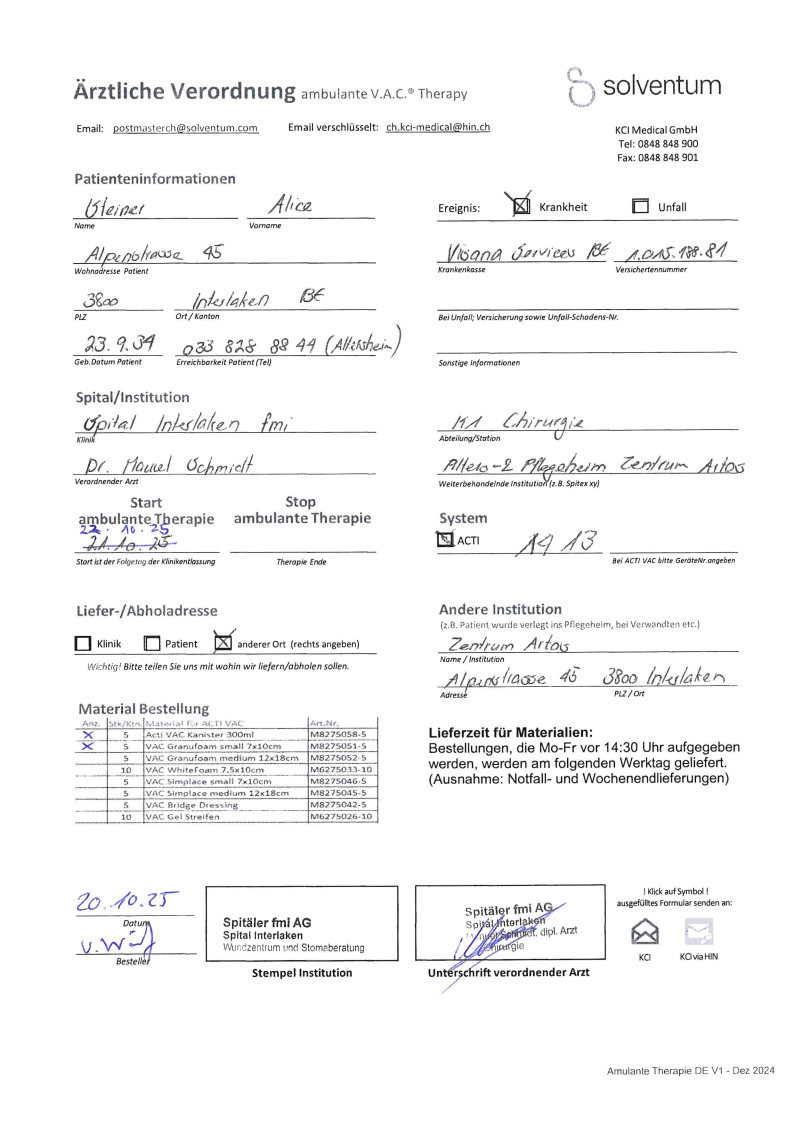 Ärztliche Verordnung ambulante V.A.C.® Therapy
solventum
Email: postmasterch@solventum.com Email verschlüsselt: ch.kci-medical@hin.ch
KCI Medical GmbH
Tel: 0848 848 900
Fax: 0848 848 901
Patienteninformationen
Steiner Alice
Name Vorname
Ereignis: Krankheit Unfall
Alpenstrasse 45
Wohnadresse Patient
Visana Services BE 1.015.188.81
Krankenkasse Versichertennummer
3800 Interlaken BE
PLZ Ort / Kanton
Bei Unfall; Versicherung sowie Unfall-Schadens-Nr.
23.9.34 033 828 88 44 (Altersheim)
Geb.Datum Patient Erreichbarkeit Patient (Tel)
Sonstige Informationen
Spital/Institution
Spital Interlaken fmi
Klinik
K1 Chirurgie
Abteilung/Station
Dr. Manuel Schmidt
Verordnender Arzt
Alters- Pflegeheim Zentrum Artos
Weiterbehandelnde Institution (z.B. Spitex xy)
Start
ambulante Therapie
22.10.25
21.10.25
Start ist der Folgetag der Klinikentlassung
Stop
ambulante Therapie
Therapie Ende
System
ACTI 1913
Bei ACTI VAC bitte GeräteNr.angeben
Liefer-/Abholadresse
Klinik Patient anderer Ort (rechts angeben)
Wichtig! Bitte teilen Sie uns mit wohin wir liefern/abholen sollen.
Andere Institution
(z.B. Patient wurde verlegt ins Pflegeheim, bei Verwandten etc.)
Zentrum Artos
Name / Institution
Alpenstrasse 45 3800 Interlaken
Adresse PLZ / Ort
Material Bestellung
Anz. Stk/Ktn. Material für ACTI VAC Art.Nr.
X 5 Acti VAC Kanister 300ml M8275058-5
X 5 VAC Granufoam small 7x10cm M8275051-5
5 VAC Granufoam medium 12x18cm M8275052-5
10 VAC WhiteFoam 7.5x10cm M6275033-10
5 VAC Simplace small 7x10cm M8275046-5
5 VAC Simplace medium 12x18cm M8275045-5
5 VAC Bridge Dressing M8275042-5
10 VAC Gel Streifen M6275026-10
Lieferzeit für Materialien:
Bestellungen, die Mo-Fr vor 14:30 Uhr aufgegeben
werden, werden am folgenden Werktag geliefert.
(Ausnahme: Notfall- und Wochenendlieferungen)
20.10.25
Datum
Besteller
Spitäler fmi AG
Spital Interlaken
Wundzentrum und Stomaberatung
Stempel Institution
Spitäler fmi AG
Spital Interlaken
Manuel Schmidt, dipl. Arzt
Chirurgie
Unterschrift verordnender Arzt
! Klick auf Symbol !
ausgefülltes Formular senden an:
KCI KCI via HIN
Amulante Therapie DE V1 - Dez 2024